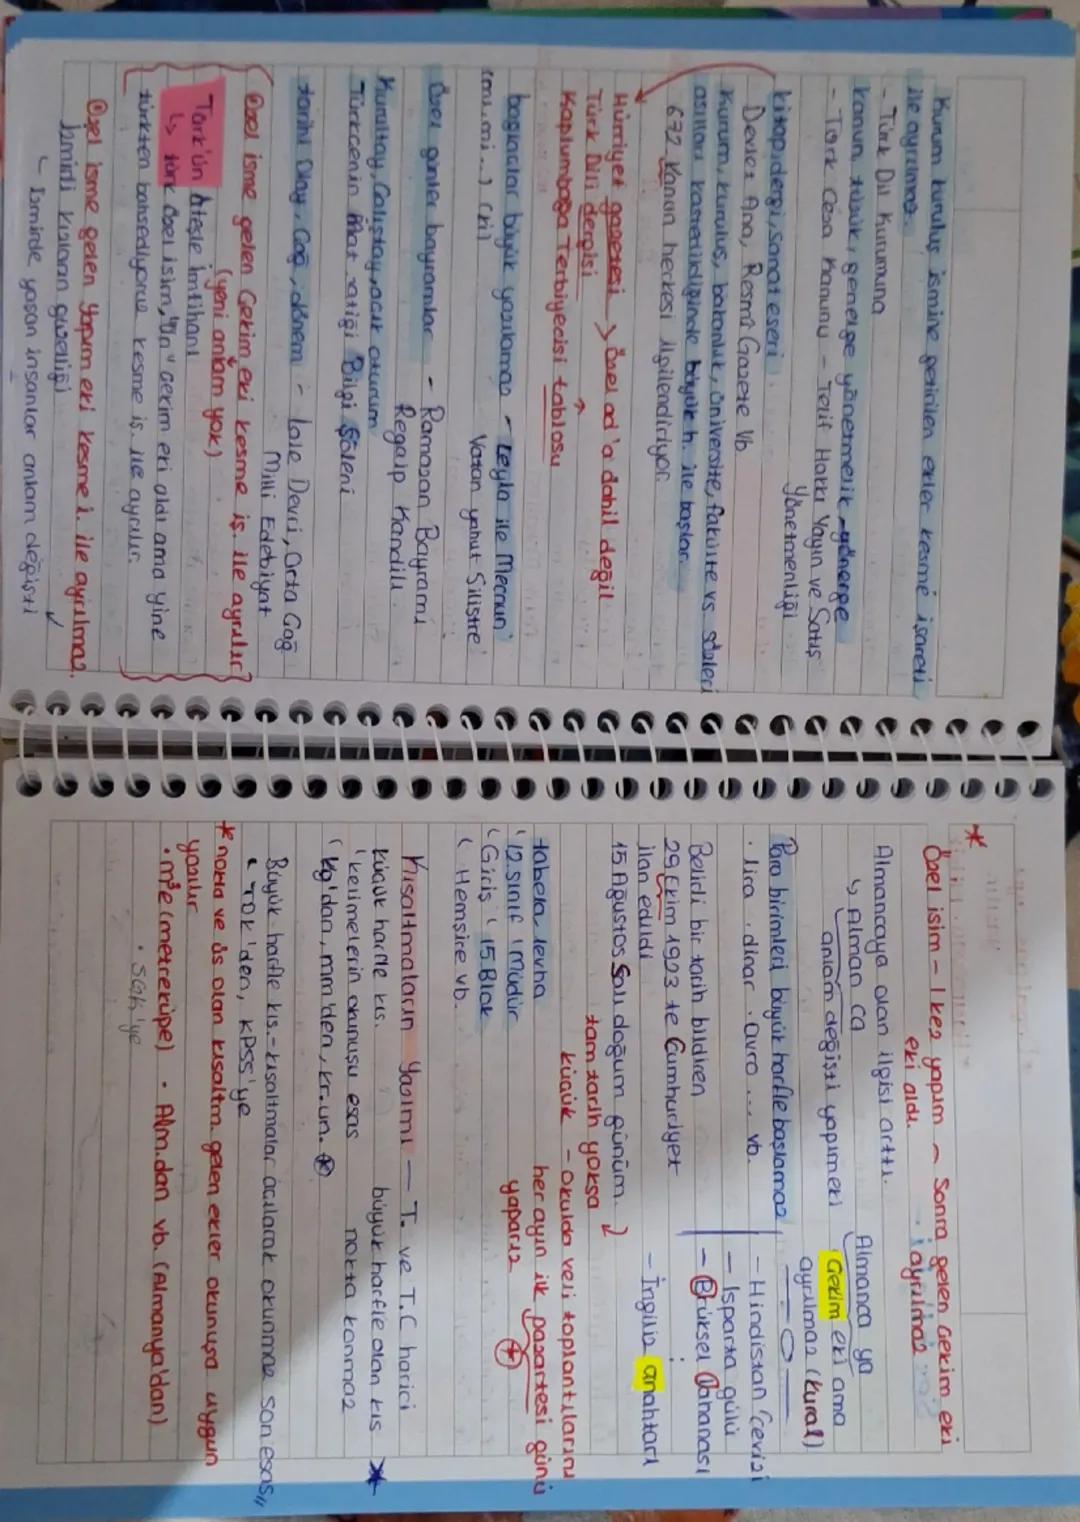 Kurum kuruluş ismine getirilen ekler kesme işareti
ile ayrılmaz.
- Türk Dil Kurumuna
Kanun, tüzük, genelge yönetmelik, yönerge
- Türk Ceza Kanunu - Telif Hakkı Yayın ve Satış
Yönetmenliği
kitap, dergi, sanat eseri
Devlet Ana, Resmî Gazete vb.
Kurum, kuruluş, bakanlık, üniversite, fakülte vs sözleri
asılları kastedildiğinde büyük h. ile başlar.
672 Kanun herkesi ilgilendiriyor.
Hürriyet gazetesi > özel ad'a dahil değil
Türk Dili dergisi
Kaplumbağa Terbiyecisi tablosu
bağlaçlar büyük yazılamaz - Leyla ile Mecnun
(mı, mi...) (ki) Vatan yahut Silistre
özel günler bayramlar - Ramazan Bayramı
Regaip Kandili
Kurultay, Çalıştay, açık oturum
Türkçenin Mat Bilgi Şöleni
tarihi Olay, Çağ, dönem :- Lale Devri, Orta Çağ
Milli Edebiyat
Özel isme gelen Çekim eki kesme iş. ile ayrılır
(yeni anlam yok)
Türk'ün Ateşle İmtihanı
↳ türk özel isim, "ün" çekim eki aldı ama yine
türkten bahsediyoruz kesme iş. ile ayrılır.
Özel isme gelen Yapım eki kesme i. ile ayrılmaz.
İzmirli kızların güzelliği
İzmirde yaşan insanlar anlam değişti
*
Özel isim - 1 kez yapım - Sonra gelen Çekim eki
eki aldı. ayrılmaz
Almancaya olan ilgisi arttı.
↳ Alman ca Almanca ya
anlam değişti yapımeki Çekim eki ama
ayrılmaz (kural)
Para birimleri büyük harfle başlamaz
. lira . dinar . avro ... vb.
- Hindistan Cevizi
- Isparta gülü
- Brüksel lahanası
- İngiliz anahtarı
Belirli bir tarih bildiren
29 Ekim 1923 te Cumhuriyet
ilan edildi
15 Ağustos Salı doğum günüm.
tam tarih yoksa
küçük - Okulda veli toplantılarını
her ayın ilk pazartesi günü
yaparız
tabela, levha
12. sınıf Müdür
Giriş 15 Blok
Hemşire vb.
Kısaltmaların Yazımı - T. ve T.C harici
büyük harfle olan kıs
nokta konmaz
küçük harfle kıs.
kelimelerin okunuşu esas
kg'dan, mm'den, kr.un.
Büyük harfle kıs. - kısaltmalar açılarak okunmaz son esas
TDK'den, KPSS'ye
* nokta ve üs olan kısaltm. gelen ekler okunuşa uygun
yazılır
. m³e (metreküpe) . Alm.dan vb. (Almanya'dan)
. SGK'ye